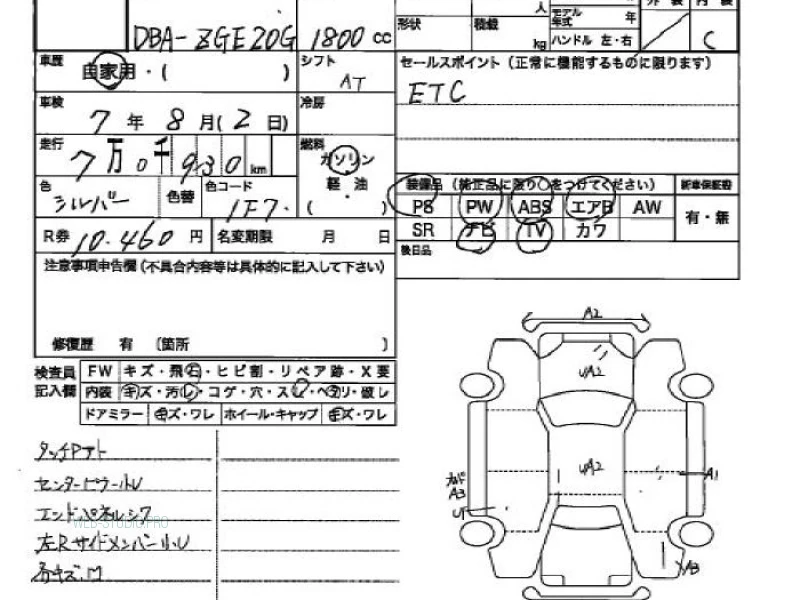 人
モデル年式 年
形状 積載 kg ハンドル 左・右
C
DBA-ZGE20G 1800 cc
車歴 自家用・( )
シフト AT
セールスポイント (正常に機能するものに限ります)
ETC
車検 7 年 8 月( 2 日)
冷房
走行 7 万 0 千 930 km
燃料 ガソリン 軽・油 ( )
色 シルバー 色替 色コード 1F7.
装備品 (純正品に限り○をつけてください) 新車保証書
PS PW ABS エアB AW 有・無
SR ナビ TV カワ
R券 10.460 円 名変期限 月 日
後日品
注意事項申告欄 (不具合内容等は具体的に記入して下さい)
修復歴 有 (箇所 )
検査員記入欄
FW キズ・飛石・ヒビ割・リペア跡・X要
内装 キズ・汚レ・コゲ・穴・スレ・ヘタリ・破し
ドアミラー キズ・ワレ ホイール・キャップ キズ・ワレ
A2
A2
A2
A1
A3
タッチPアト
センターピラー小U
エンドパネルシワ
WEB-STUDIO.PRO
左Rサイドメンバー小U